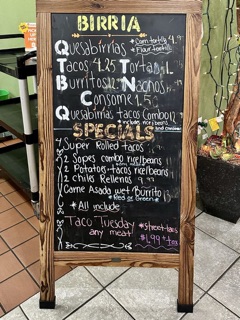 BIRRIA
Quesabirrias * Corn tortilla 4.9
* Flour tortilla
Tacos 4.25 Torta
Burritos Nachos
Consome 1.5
Quesabirrias tacos Combo
* includes rice/beans and consome
SPECIALS
4 Super Rolled tacos
2 Sopes combo rice/beans
2 Potatoes tacos rice/beans
2 chiles Rellenos 9
Carne Asada wet Burrito
* Red or Green *
* All include
Taco Tuesday * Street tacos
any meat $1.99 + tax